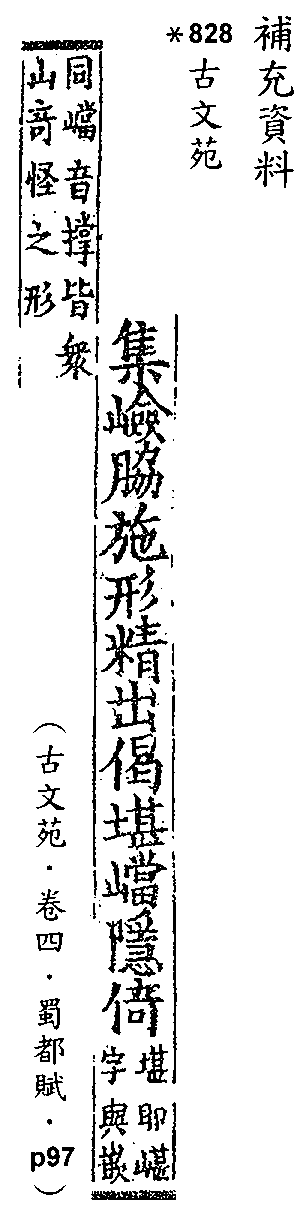 補充資料
*828
古文苑
集嶮脇施形精出偈堪嵣隱倚
堪即嵁
字與嵌
同嵣音撐皆衆
山竒怪之形
(古文苑・卷四・蜀都賦・p97)